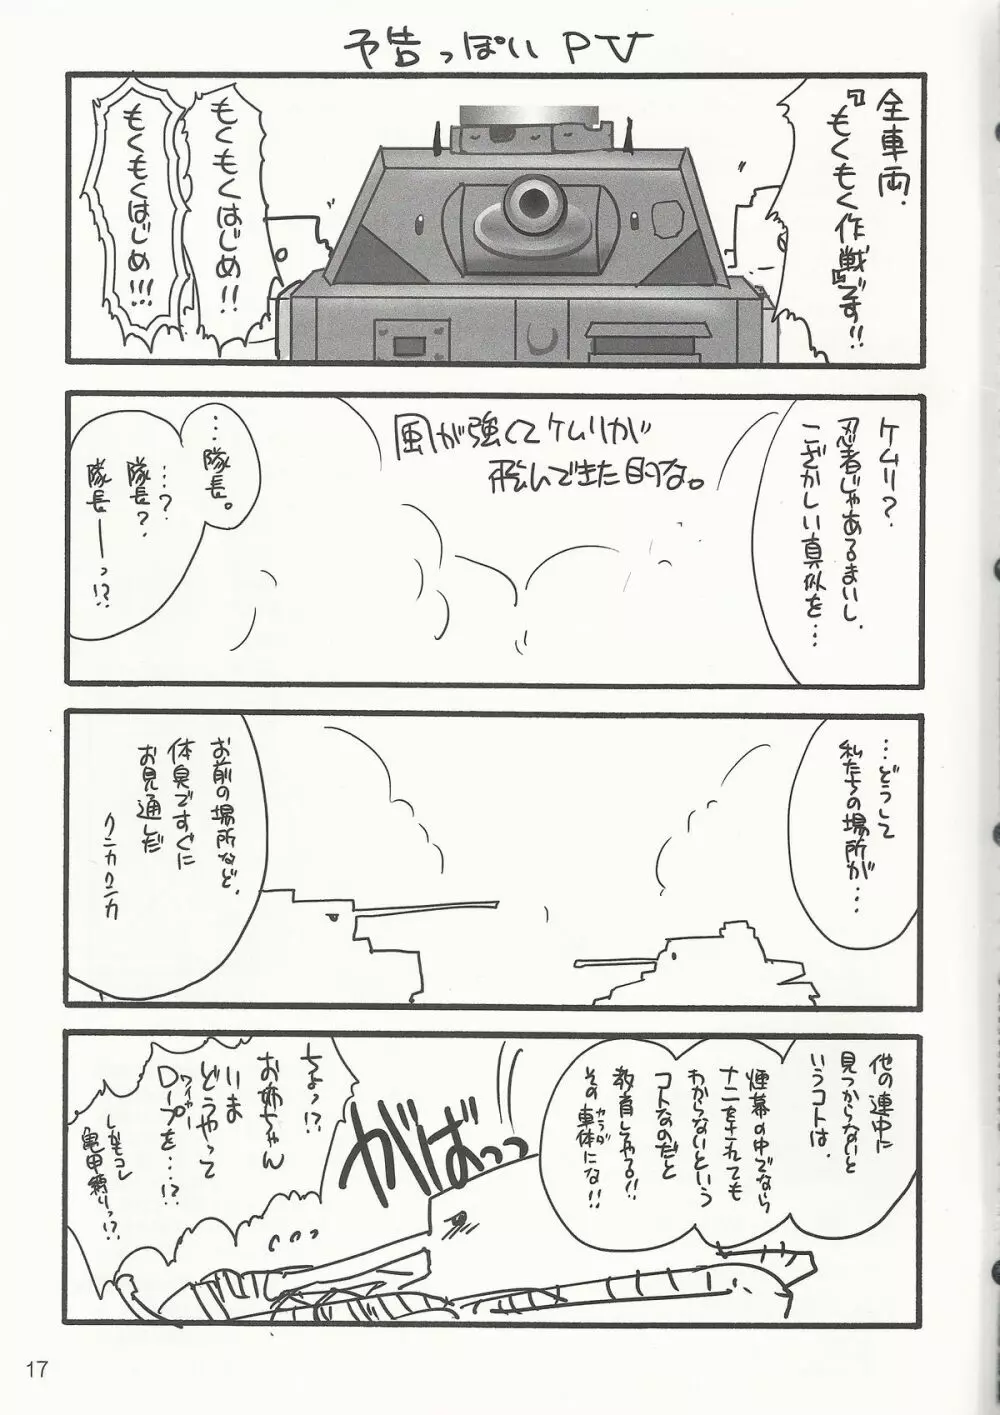 予告っぽいPV
全車両、
『もくもく作戦』です!!
もくもくはじめ!!
もくもくはじめ!!!
ケムリ?
忍者じゃあるまいし、
こざかしい真似を…
風が強くてケムリが
飛んできた的な。
…隊長。
…?
隊長?
隊長ーっ!?
…どうして
私たちの場所が…
お前の場所など、
体臭ですぐに
お見通しだ
クンカクンカ
他の連中に
見つからないと
いうコトは、
煙幕の中でなら
ナニをされても
わからないという
コトなのだと
教育してやる!!
その車体にな!!
カラダ
がばっっ
ちょっ!?
お姉ちゃん
いま
どうやって
ロープを…!?
ワイヤー
しかもコレ
亀甲縛りっ!?
17